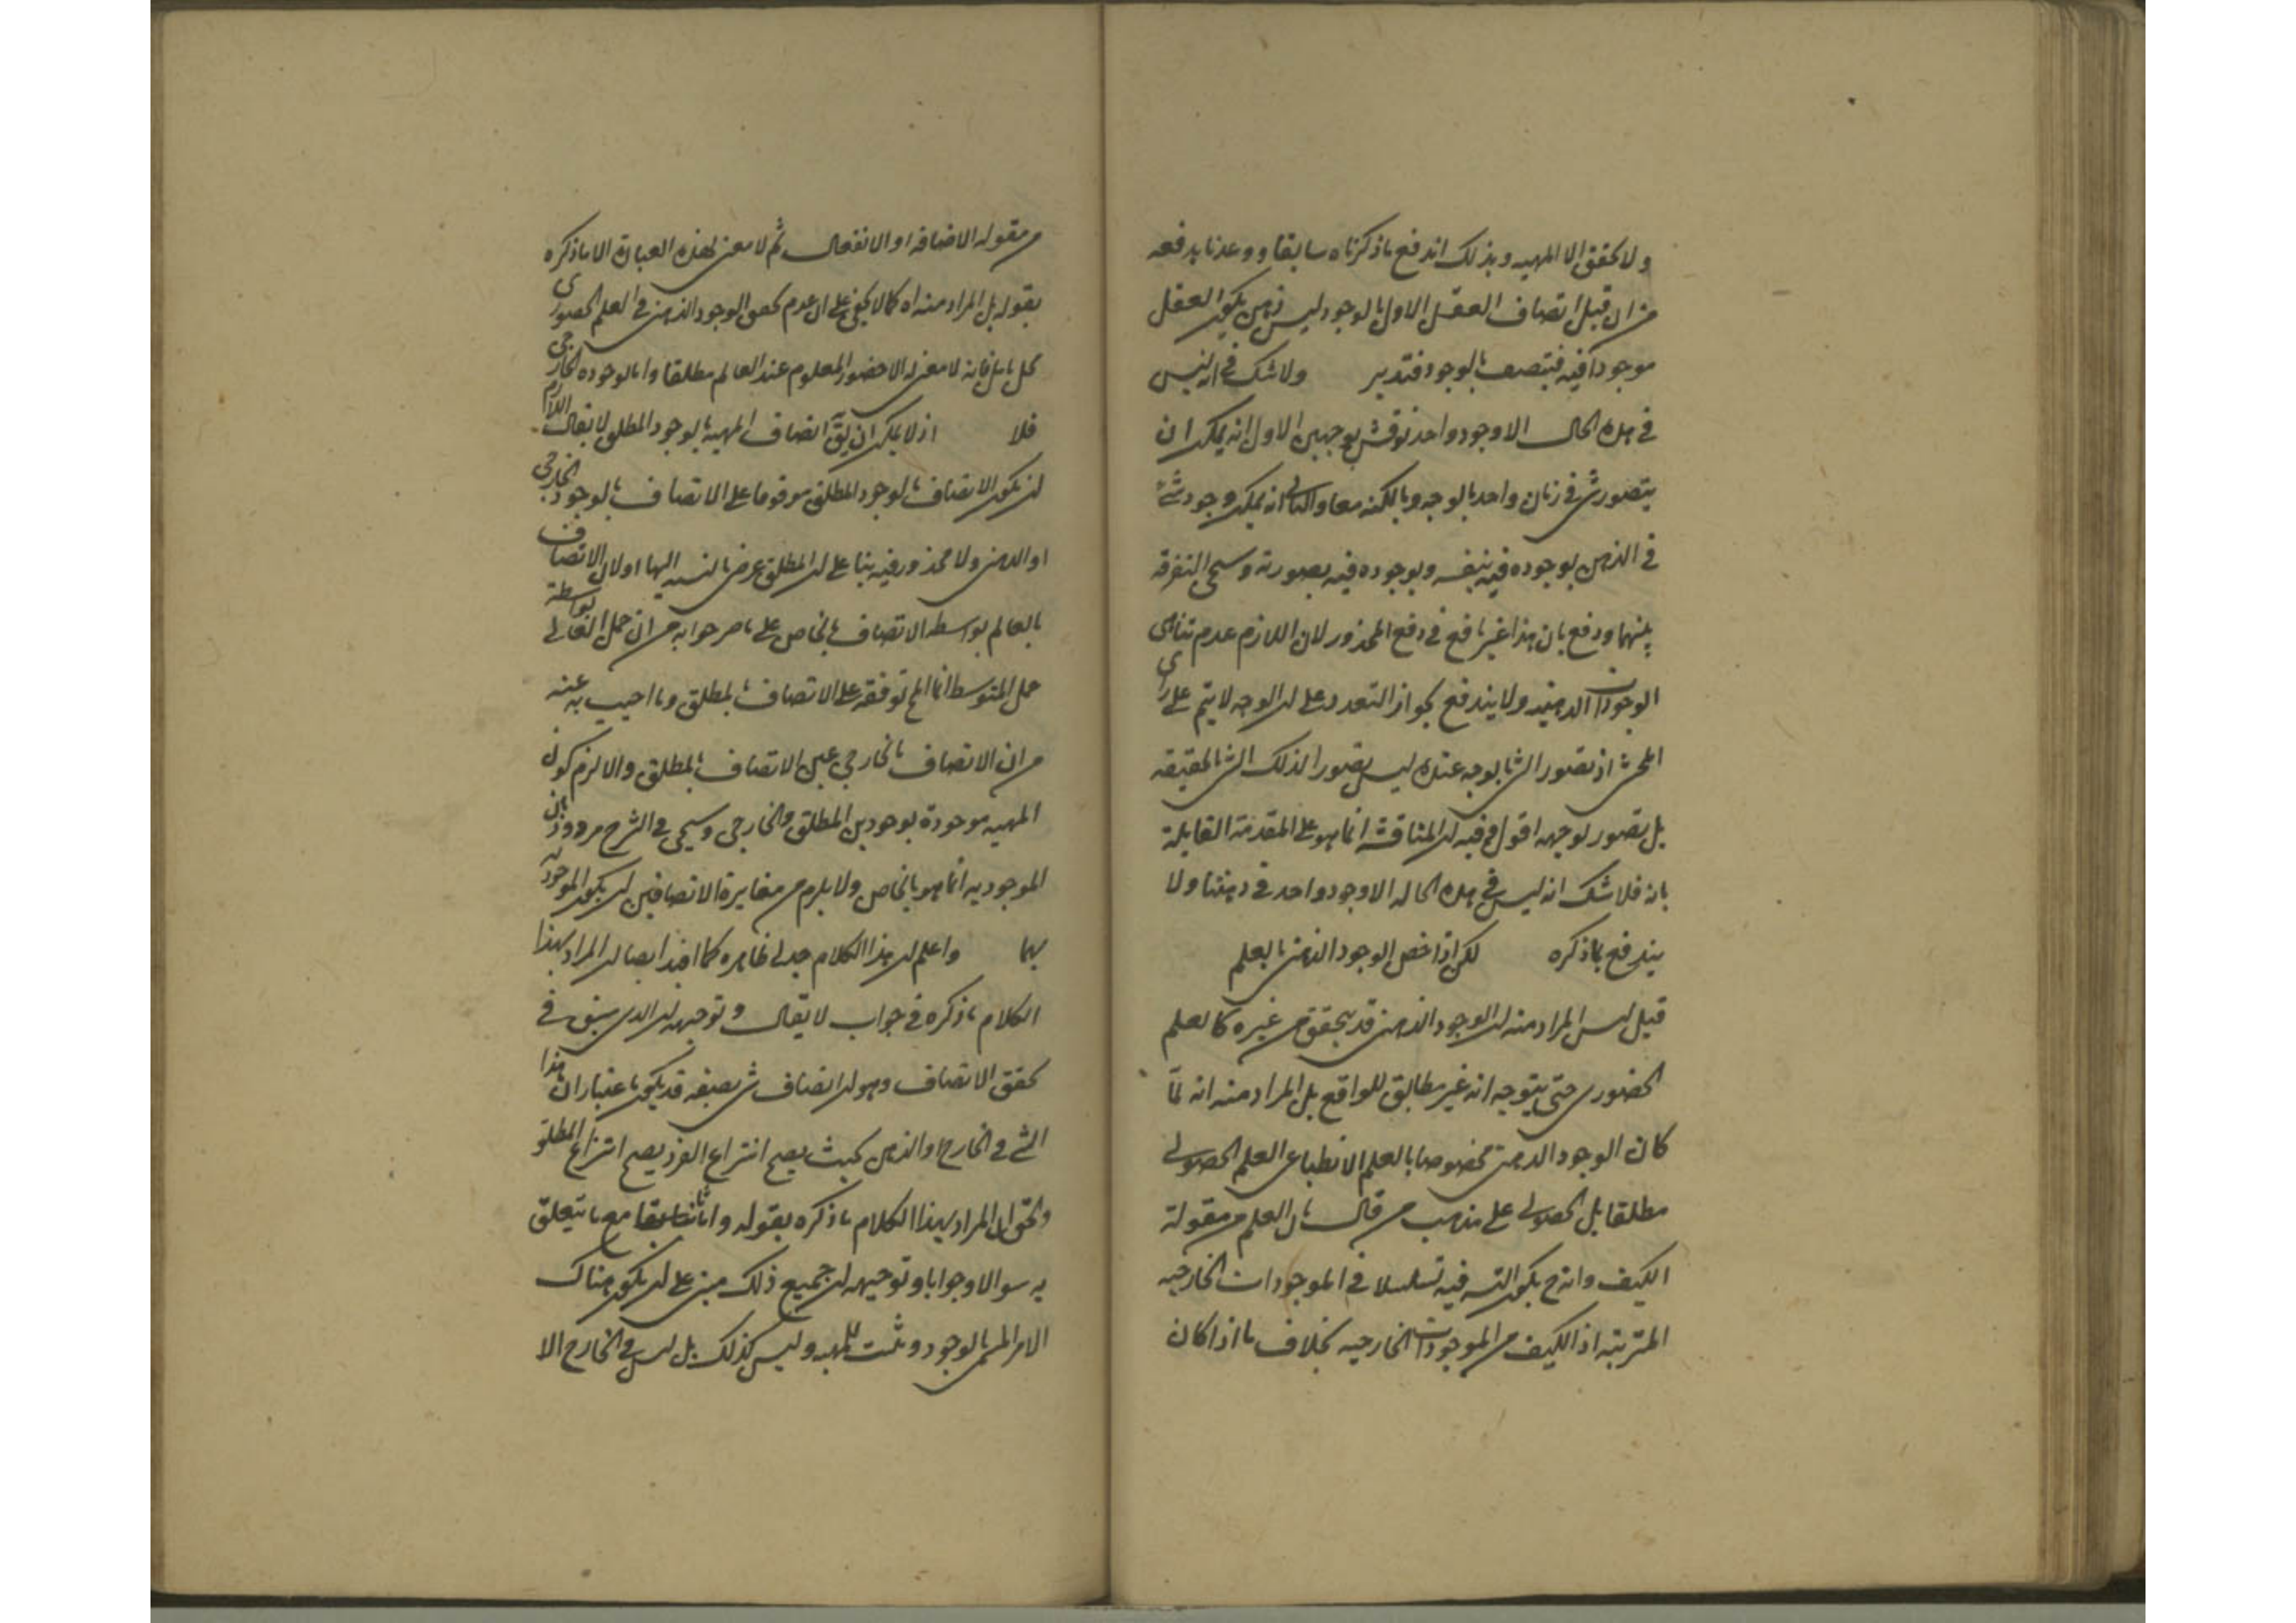 ولا تحقق الا المهيه وبذلك اندفع ما ذكرناه سابقا ووعدنا بدفعه
من ان قبل اتصاف العقل الاول بالوجود ليس ذهن يكون العقل
موجودا فيه فيتصف بالوجود فتدبر ولا شك في انه ليس
في هذه الحال الا وجود واحد نوقش بوجهين الاول انه يمكن ان
يتصور شئ في زمان واحد بالوجه وبالكنه معا والثاني انه يمكن وجود شئ
في الذهن بوجوده فيه بنفسه وبوجوده فيه بصورته وسيجئ التفرقة
بينهما ودفع بان هذا غير نافع في دفع المحذور لان اللازم عدم تناهى
الوجودات الذهنيه ولا يندفع بجواز التعدد على ان الوجه لا يتم على راى
المحشى اذ تصور الشئ بوجه عنده ليس تصورا لذلك الشئ بالحقيقه
بل تصور لوجهه اقول فيه ان المناقشة انما هو على المقدمة القايلة
بانه فلا شك انه ليس في هذه الحاله الا وجود واحد في ذهننا ولا
يندفع بما ذكره لكن اذا خص الوجود الذهنى بالعلم
قيل ليس المراد منه ان الوجود الذهنى قد يتحقق من غيره كالعلم
الحضورى حتى يتوجه انه غير مطابق للواقع بل المراد منه انه لما
كان الوجود الذهنى مخصوصا بالعلم الانطباعى العلم الحصولى
مطلقا بل الحصولى على مذهب من قال بان العلم من مقولة
الكيف وانه ح يكون التسـ فيه تسلسلا في الموجودات الخارجيه
المترتبه اذ الكيف من الموجودات الخارجيه بخلاف ما اذا كان
من مقوله الاضافه او الانفعال ثم لا معنى لهذه العبارة الا ما ذكره
بقوله بل المراد منه اه كما لا يخفى على ان عدم تحقق الوجود الذهنى في العلم الحضورى
محل تامل فانه لا معنى له الا حضور المعلوم عند العالم مطلقا واما بالوجوده الخارجى
فلا اذ لا يمكن ان يق اتصاف المهية بالوجود المطلق لا يقال اللازم
ان يكون الاتصاف بالوجود المطلق موقوفا على الاتصاف بالوجود الخارجى
او الذهنى ولا محذور فيه بناء على ان المطلق عرض بالنسبه اليها او لان الاتصاف
بالعالم بواسطه الاتصاف بالخاص على ما صرحوا به من ان حمل العالى بواسطة
حمل المتوسط انما الح توقفه على الاتصاف بالمطلق وما اجيب به عنه
من ان الاتصاف بالخارجى عين الاتصاف بالمطلق والا لزم كون
المهيه موجودة بوجودين المطلق والخارجى وسيجئ في الشرح مردود بان
الموجوديه انما هو بالخاص ولا يلزم من مغايرة الاتصافين ان يكون الموجوديه
بهما واعلم ان هذا الكلام جدلى ظاهره كما افيد ايضا ان المراد بهذا
الكلام ما ذكره في جواب لا يقال وتوجيهه ان الذى سبق في
تحقق الاتصاف وهو ان اتصاف شئ بصفه قد يكون باعتبار ان هذا
الشئ في الخارج او الذهن بحيث يصح انتزاع الفرد يصح انتزاع المطلق
والحق ان المراد بهذا الكلام ما ذكره بقوله واما ثانيا مع ما يتعلق
به سوالا وجوابا وتوجيهه ان جميع ذلك مبنى على ان يكون هناك
الامر المسمى بالوجود وثبت للمهيه وليس كذلك بل ليس في الخارج الا